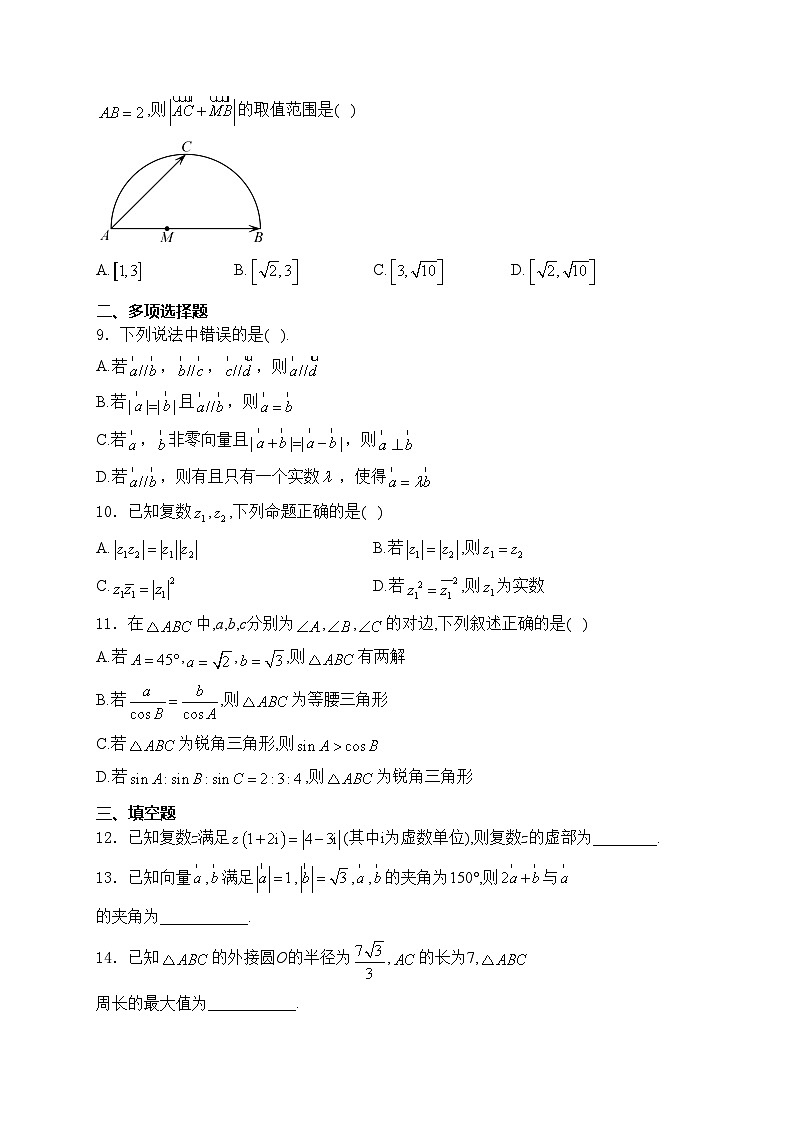 AB = 2 ,则 |AC + MB| 的取值范围是( )
C
A M B
A.[1,3] B.[√2,3] C.[3,√10] D.[√2,√10]
二、多项选择题
9．下列说法中错误的是( ).
A.若 a//b ，b//c ，c//d ，则 a//d
B.若 |a|=|b| 且 a//b ，则 a = b
C.若 a ，b 非零向量且 |a+b|=|a−b| ，则 a ⊥ b
D.若 a//b ，则有且只有一个实数 λ ，使得 a = λb
10．已知复数 z₁ , z₂ ,下列命题正确的是( )
A. |z₁z₂| = |z₁||z₂| B.若 |z₁| = |z₂| ,则 z₁ = z₂
C. z₁z̄₁ = |z₁|² D.若 z₁² = z̄₁² ,则 z₁ 为实数
11．在 △ABC 中,a,b,c分别为 ∠A , ∠B , ∠C 的对边,下列叙述正确的是( )
A.若 A = 45° , a = √2 , b = √3 ,则 △ABC 有两解
B.若 a/cos B = b/cos A ,则 △ABC 为等腰三角形
C.若 △ABC 为锐角三角形,则 sin A > cos B
D.若 sin A : sin B : sin C = 2 : 3 : 4 ,则 △ABC 为锐角三角形
三、填空题
12．已知复数z满足 z(1+2i) = |4−3i| (其中i为虚数单位),则复数z的虚部为________.
13．已知向量 a , b 满足 |a| = 1 , |b| = √3 , a , b 的夹角为 150° ,则 2a + b 与 a
的夹角为___________.
14．已知 △ABC 的外接圆O的半径为 7√3/3 , AC 的长为7, △ABC
周长的最大值为___________.